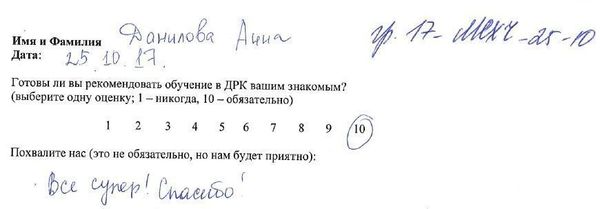 Имя и Фамилия Данилова Анна гр. 17-МСХЧ-25-10
Дата: 25.10.17.
Готовы ли вы рекомендовать обучение в ДРК вашим знакомым?
(выберите одну оценку; 1 – никогда, 10 – обязательно)
1 2 3 4 5 6 7 8 9 10
Похвалите нас (это не обязательно, но нам будет приятно):
Все супер! Спасибо!